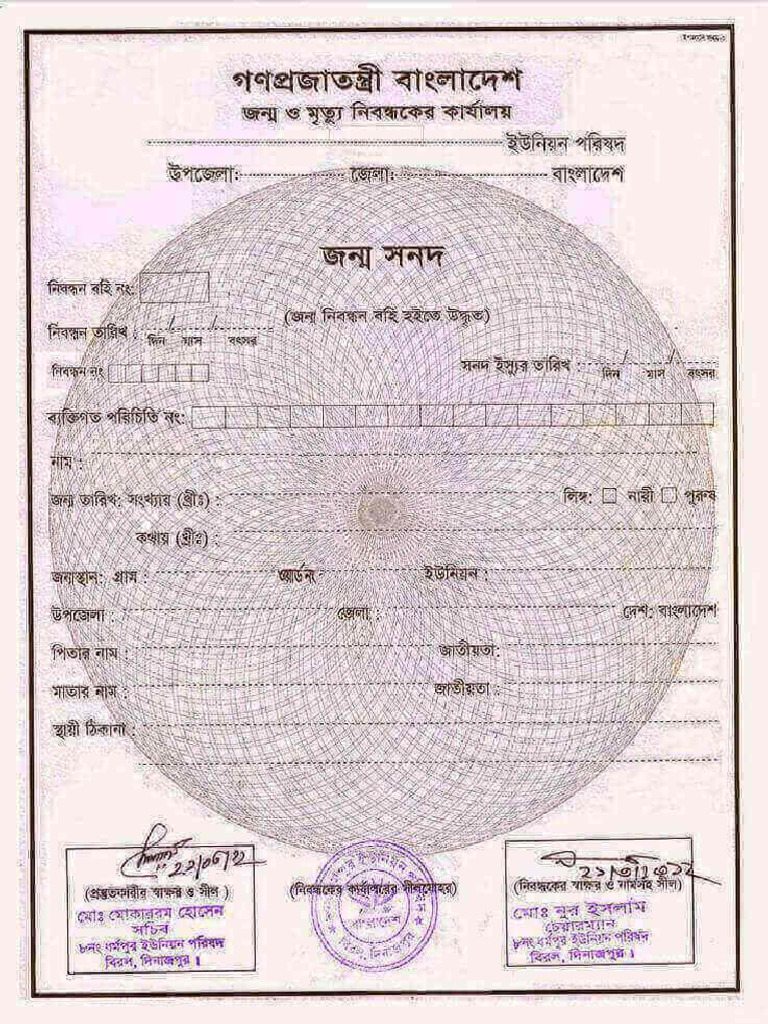 গণপ্রজাতন্ত্রী বাংলাদেশ
জন্ম ও মৃত্যু নিবন্ধকের কার্যালয়
ইউনিয়ন পরিষদ
উপজেলা: জেলা: বাংলাদেশ
জন্ম সনদ
নিবন্ধন বহি নং:
(জন্ম নিবন্ধন বহি হইতে উদ্ধৃত)
নিবন্ধন তারিখ : / /
দিন মাস বৎসর
সনদ ইস্যুর তারিখ : / /
দিন মাস বৎসর
নিবন্ধন নং
ব্যক্তিগত পরিচিতি নং:
নাম :
জন্ম তারিখ: সংখ্যায় (খ্রীঃ) : লিঙ্গ: নারী পুরুষ
কথায় (খ্রীঃ) :
জন্মস্থান: গ্রাম : ওয়ার্ডনং ইউনিয়ন :
উপজেলা : জেলা : দেশ: বাংলাদেশ
পিতার নাম : জাতীয়তা:
মাতার নাম : জাতীয়তা :
স্থায়ী ঠিকানা :
(প্রস্তুতকারীর স্বাক্ষর ও সীল )
মোঃ মোকাররম হোসেন
সচিব
৮নং ধর্মপুর ইউনিয়ন পরিষদ
বিরল, দিনাজপুর।
(নিবন্ধকের কার্যালয়ের সীলমোহর)
বাংলাদেশ
বিরল, দিনাজপুর
(নিবন্ধকের স্বাক্ষর ও নামসহ সীল)
মোঃ নুর ইসলাম
চেয়ারম্যান
৮নং ধর্মপুর ইউনিয়ন পরিষদ
বিরল, দিনাজপুর।